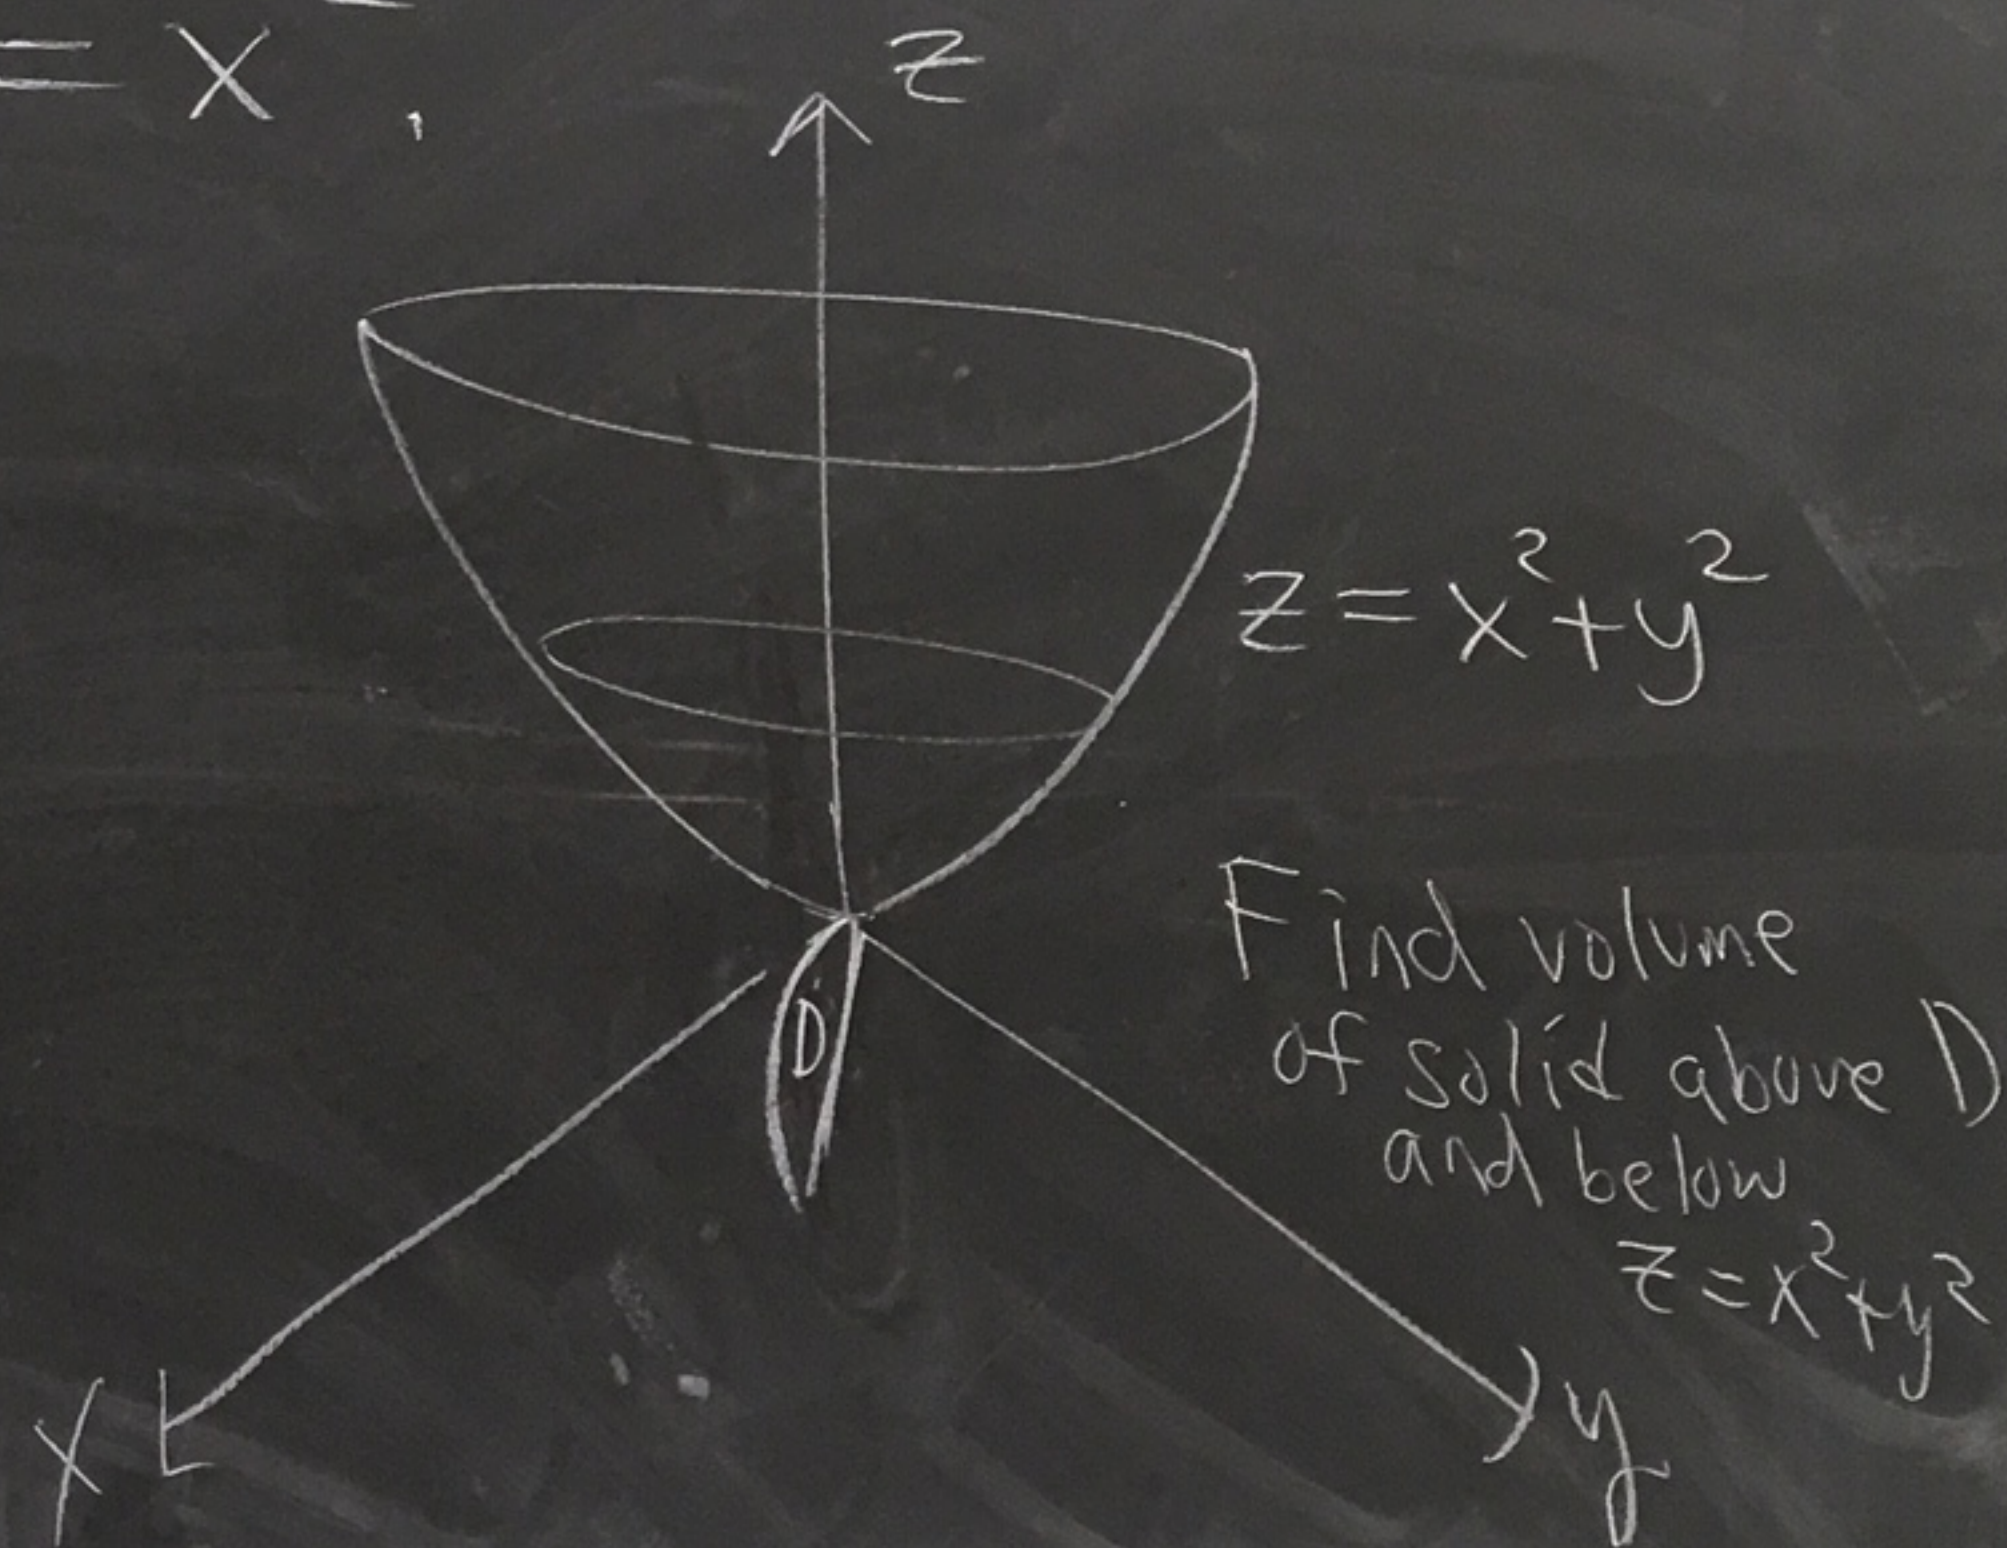 = x
z
z = x² + y²
D
Find volume
of solid above D
and below
z = x² + y²
x
y